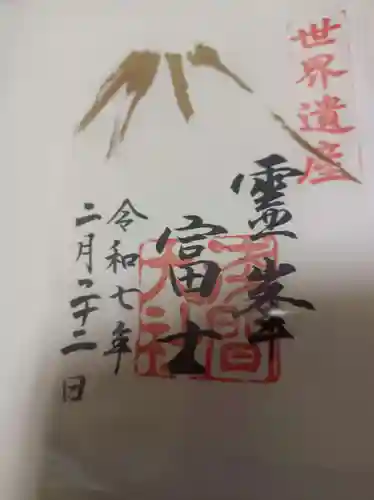 世界遺産
霊峯
富士
浅間
大社
令和七年
二月二十二日